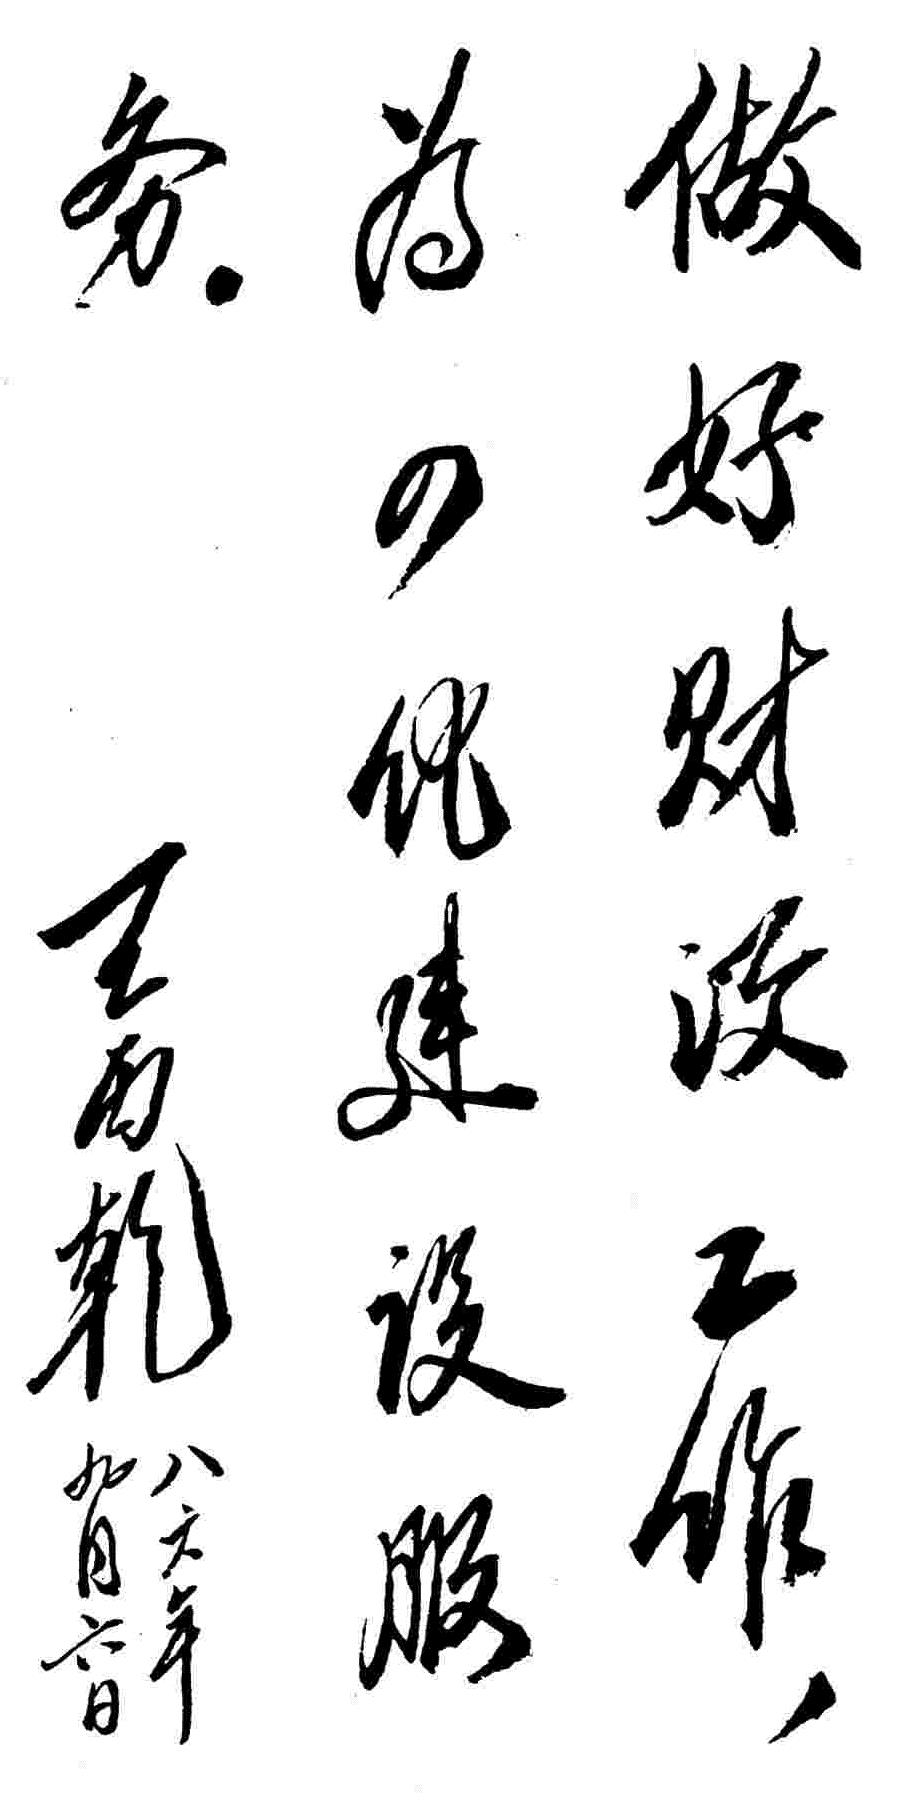 做好财政工作，
为四化建设服
务．
王丙乾
八六年
九月六日